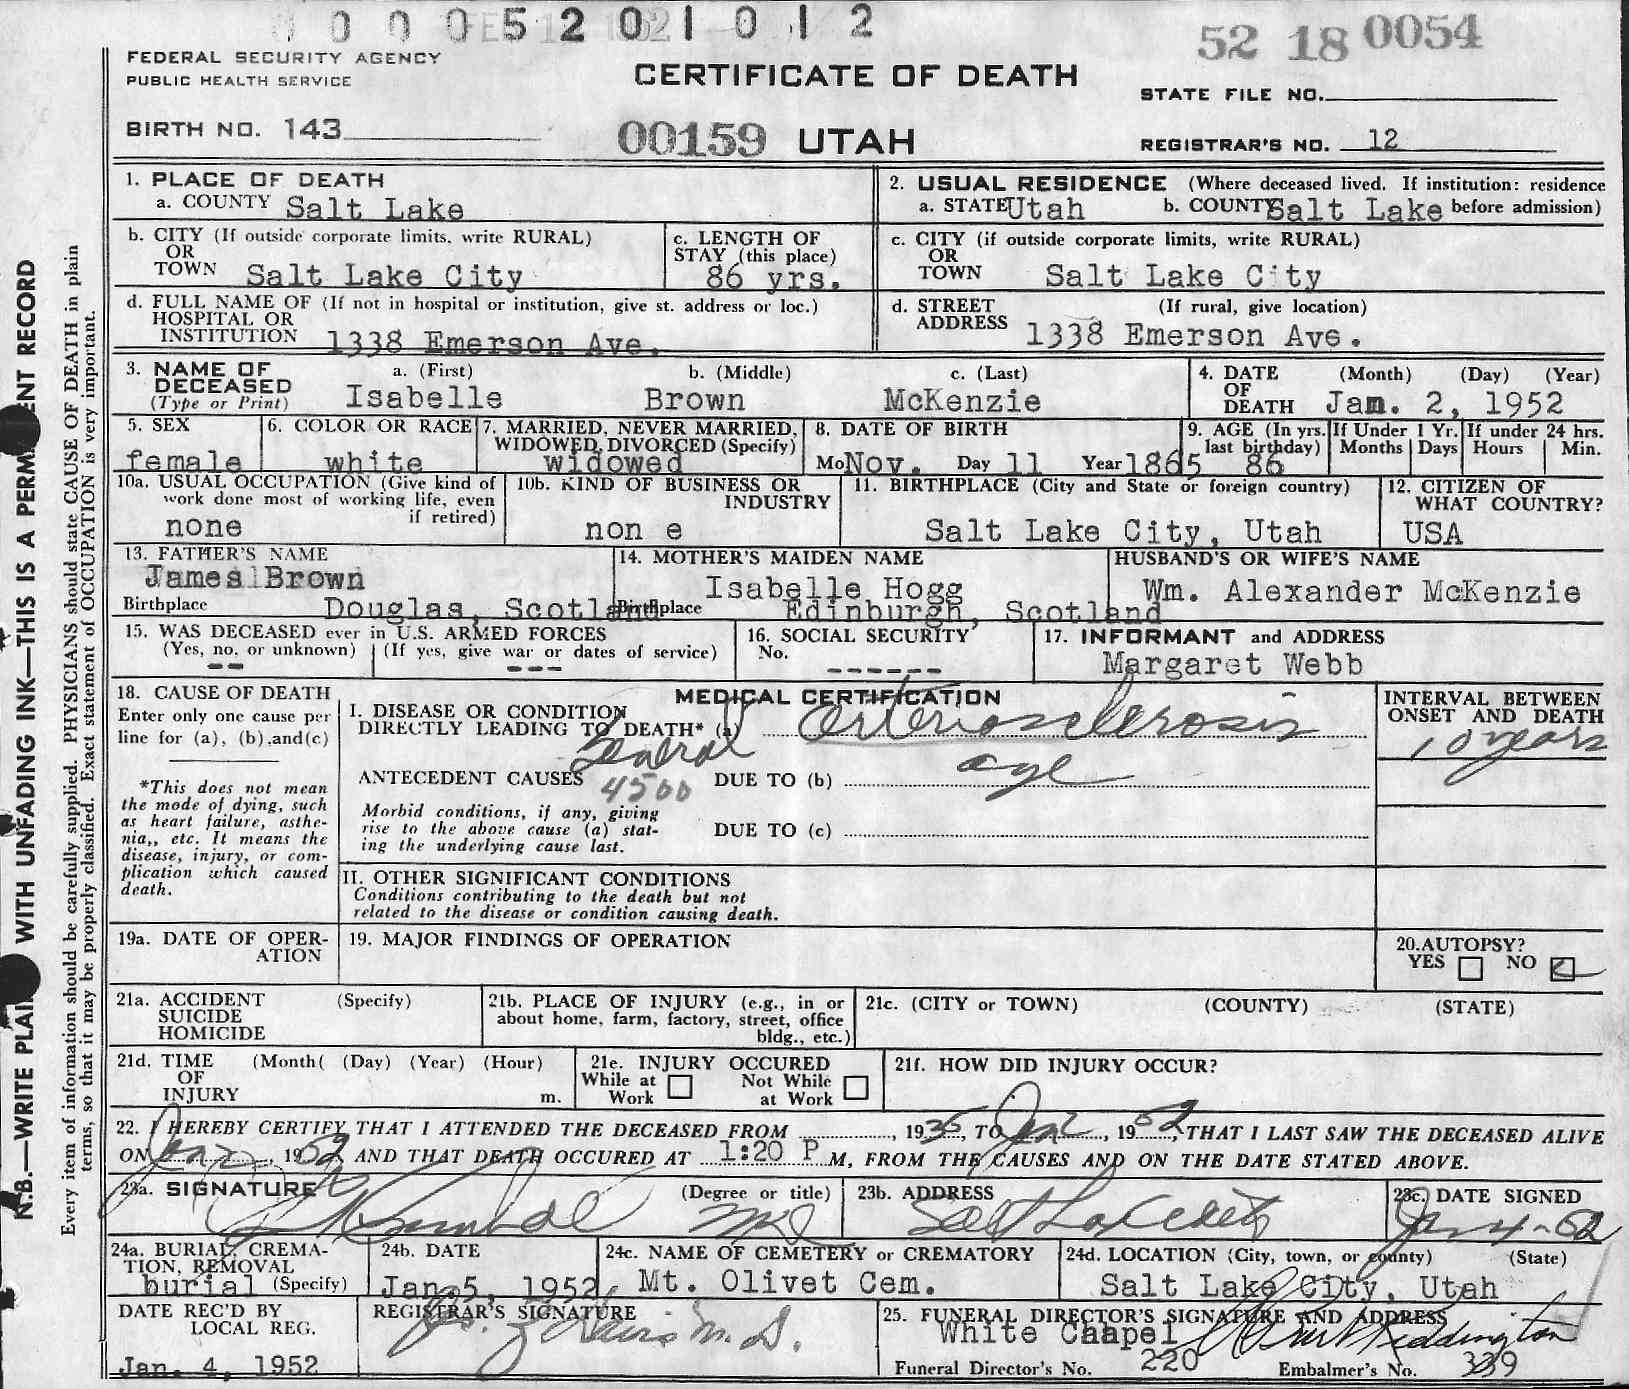 0 0 0 5 2 0 1 0 1 2
52 18 0054
FEDERAL SECURITY AGENCY
PUBLIC HEALTH SERVICE
CERTIFICATE OF DEATH
STATE FILE NO.
BIRTH NO. 143
00159 UTAH
REGISTRAR'S NO. 12
1. PLACE OF DEATH
a. COUNTY Salt Lake
2. USUAL RESIDENCE (Where deceased lived. If institution: residence
a. STATE Utah b. COUNTY Salt Lake before admission)
b. CITY (If outside corporate limits, write RURAL)
OR
TOWN Salt Lake City
c. LENGTH OF
STAY (this place)
86 yrs.
c. CITY (if outside corporate limits, write RURAL)
OR
TOWN Salt Lake City
d. FULL NAME OF (If not in hospital or institution, give st. address or loc.)
HOSPITAL OR
INSTITUTION 1338 Emerson Ave.
d. STREET (If rural, give location)
ADDRESS 1338 Emerson Ave.
3. NAME OF
DECEASED
(Type or Print)
a. (First) b. (Middle) c. (Last)
Isabelle Brown McKenzie
4. DATE (Month) (Day) (Year)
OF
DEATH Jan. 2, 1952
5. SEX
female
6. COLOR OR RACE
white
7. MARRIED, NEVER MARRIED,
WIDOWED, DIVORCED (Specify)
widowed
8. DATE OF BIRTH
Mo Nov. Day 11 Year 1865
9. AGE (In yrs.
last birthday)
86
If Under 1 Yr.
Months Days
If under 24 hrs.
Hours Min.
10a. USUAL OCCUPATION (Give kind of
work done most of working life, even
if retired)
none
10b. KIND OF BUSINESS OR
INDUSTRY
non e
11. BIRTHPLACE (City and State or foreign country)
Salt Lake City, Utah
12. CITIZEN OF
WHAT COUNTRY?
USA
13. FATHER'S NAME
James Brown
Birthplace Douglas, Scotland
14. MOTHER'S MAIDEN NAME
Isabelle Hogg
Birthplace Edinburgh, Scotland
HUSBAND'S OR WIFE'S NAME
Wm. Alexander McKenzie
15. WAS DECEASED ever in U.S. ARMED FORCES
(Yes, no. or unknown) (If yes, give war or dates of service)
-- ---
16. SOCIAL SECURITY
No.
------
17. INFORMANT and ADDRESS
Margaret Webb
18. CAUSE OF DEATH
Enter only one cause per
line for (a), (b),and(c)
*This does not mean
the mode of dying, such
as heart failure, asthe-
nia,, etc. It means the
disease, injury, or com-
plication which caused
death.
MEDICAL CERTIFICATION
I. DISEASE OR CONDITION
DIRECTLY LEADING TO DEATH* (a) General arteriosclerosis
ANTECEDENT CAUSES DUE TO (b) age
4500
Morbid conditions, if any, giving
rise to the above cause (a) stat-
ing the underlying cause last.
DUE TO (c)
INTERVAL BETWEEN
ONSET AND DEATH
10 years
II. OTHER SIGNIFICANT CONDITIONS
Conditions contributing to the death but not
related to the disease or condition causing death.
19a. DATE OF OPER-
ATION
19. MAJOR FINDINGS OF OPERATION
20.AUTOPSY?
YES NO
21a. ACCIDENT (Specify)
SUICIDE
HOMICIDE
21b. PLACE OF INJURY (e.g., in or
about home, farm, factory, street, office
bldg., etc.)
21c. (CITY or TOWN) (COUNTY) (STATE)
21d. TIME (Month( (Day) (Year) (Hour)
OF
INJURY m.
21e. INJURY OCCURED
While at Work
Not While at Work
21f. HOW DID INJURY OCCUR?
22. I HEREBY CERTIFY THAT I ATTENDED THE DECEASED FROM , 1935, TO Jan 2, 1952, THAT I LAST SAW THE DECEASED ALIVE
ON Jan 2, 1952 AND THAT DEATH OCCURED AT 1:20 P M, FROM THE CAUSES AND ON THE DATE STATED ABOVE.
23a. SIGNATURE (Degree or title)
Kimball MD
23b. ADDRESS
Salt Lake City
23c. DATE SIGNED
Jan 4-52
24a. BURIAL, CREMA-
TION, REMOVAL
burial (Specify)
24b. DATE
Jan.5, 1952
24c. NAME OF CEMETERY or CREMATORY
Mt. Olivet Cem.
24d. LOCATION (City, town, or county) (State)
Salt Lake City, Utah
DATE REC'D BY
LOCAL REG.
Jan. 4, 1952
REGISTRAR'S SIGNATURE
M.D.
25. FUNERAL DIRECTOR'S SIGNATURE AND ADDRESS
White Chapel
Funeral Director's No. 220 Embalmer's No. 339
N.B.—WRITE PLAI WITH UNFADING INK—THIS IS A PERM ENT RECORD
Every item of information should be carefully supplied. PHYSICIANS should state CAUSE OF DEATH in plain
terms, so that it may be properly classified. Exact statement of OCCUPATION is very important.